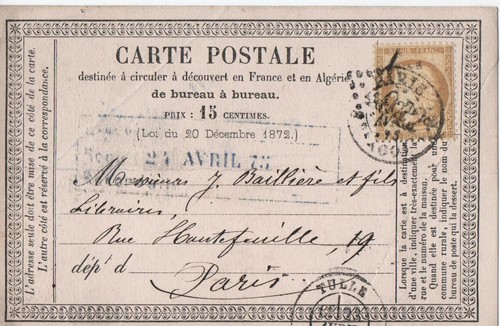 CARTE POSTALE
destinée à circuler à découvert en France et en Algérie
de bureau à bureau.
PRIX : 15 CENTIMES.
(Loi du 20 Décembre 1872.)
24 AVRIL 75
Messieurs J. Baillière et fils
Libraires,
Rue Hautefeuille, 19
dépt d
Paris
L'adresse seule doit être mise de ce côté de la carte.
L'autre côté est réservé à la correspondance.
Lorsque la carte est à destination
d'une ville, indiquer très-exactement la
rue et le numéro de la maison.
Quand elle est destinée pour une
commune rurale, indiquer le nom du
bureau de poste qui la dessert.
PARIS
75
TULLE